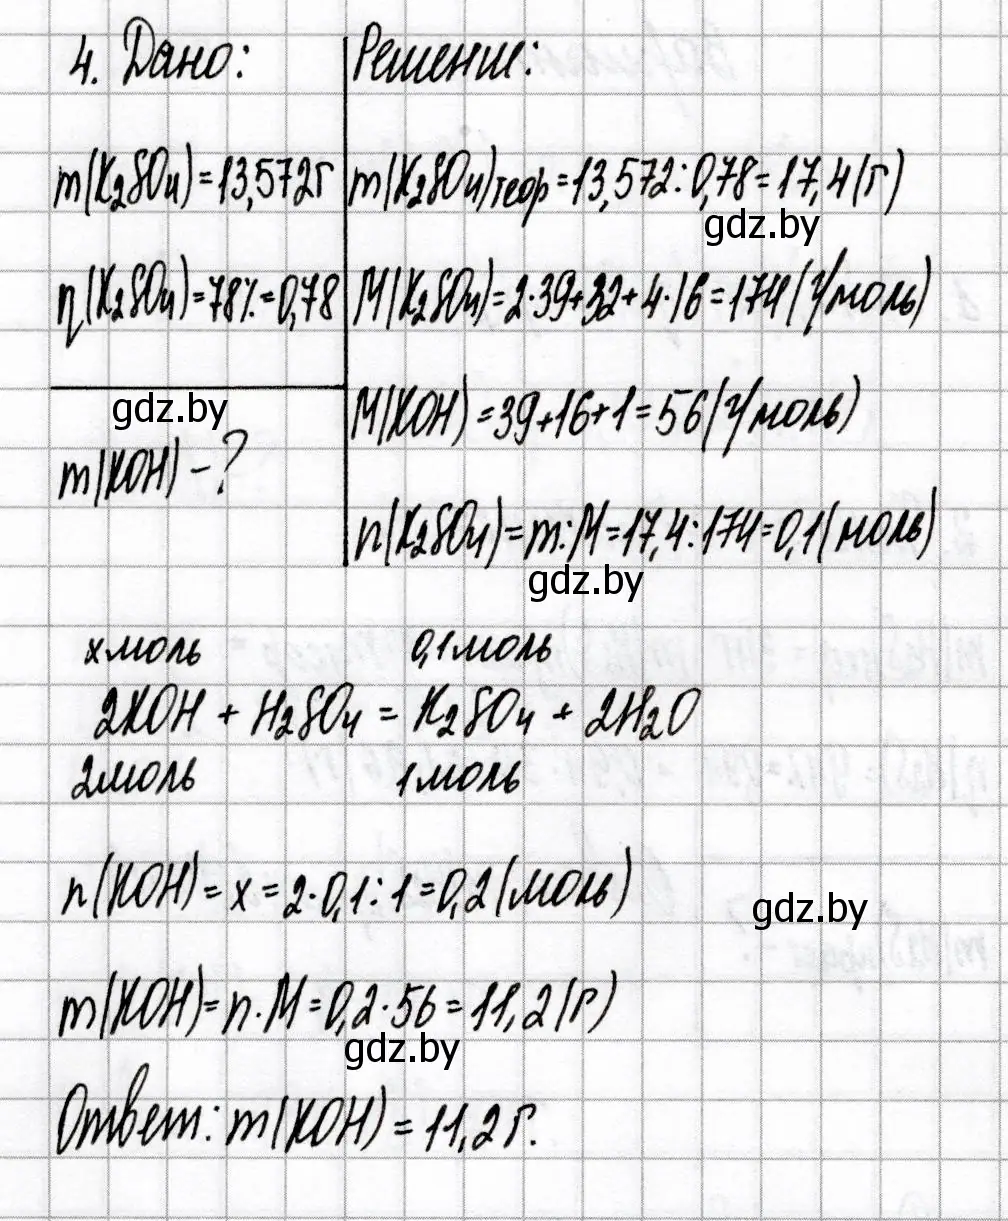 4. Дано:
m(K₂SO₄) = 13,572 г
η(K₂SO₄) = 78% = 0,78
gdz.by
m(KOH) - ?
Решение:
m(K₂SO₄)теор = 13,572 : 0,78 = 17,4 (г)
gdz.by
M(K₂SO₄) = 2·39+32+4·16 = 174 (г/моль)
M(KOH) = 39+16+1 = 56 (г/моль)
n(K₂SO₄) = m:M = 17,4 : 174 = 0,1 (моль)
gdz.by
x моль 0,1 моль
2KOH + H₂SO₄ = K₂SO₄ + 2H₂O
2 моль 1 моль
n(KOH) = x = 2·0,1 : 1 = 0,2 (моль)
gdz.by
m(KOH) = n·M = 0,2·56 = 11,2 (г)
gdz.by
Ответ: m(KOH) = 11,2 г.